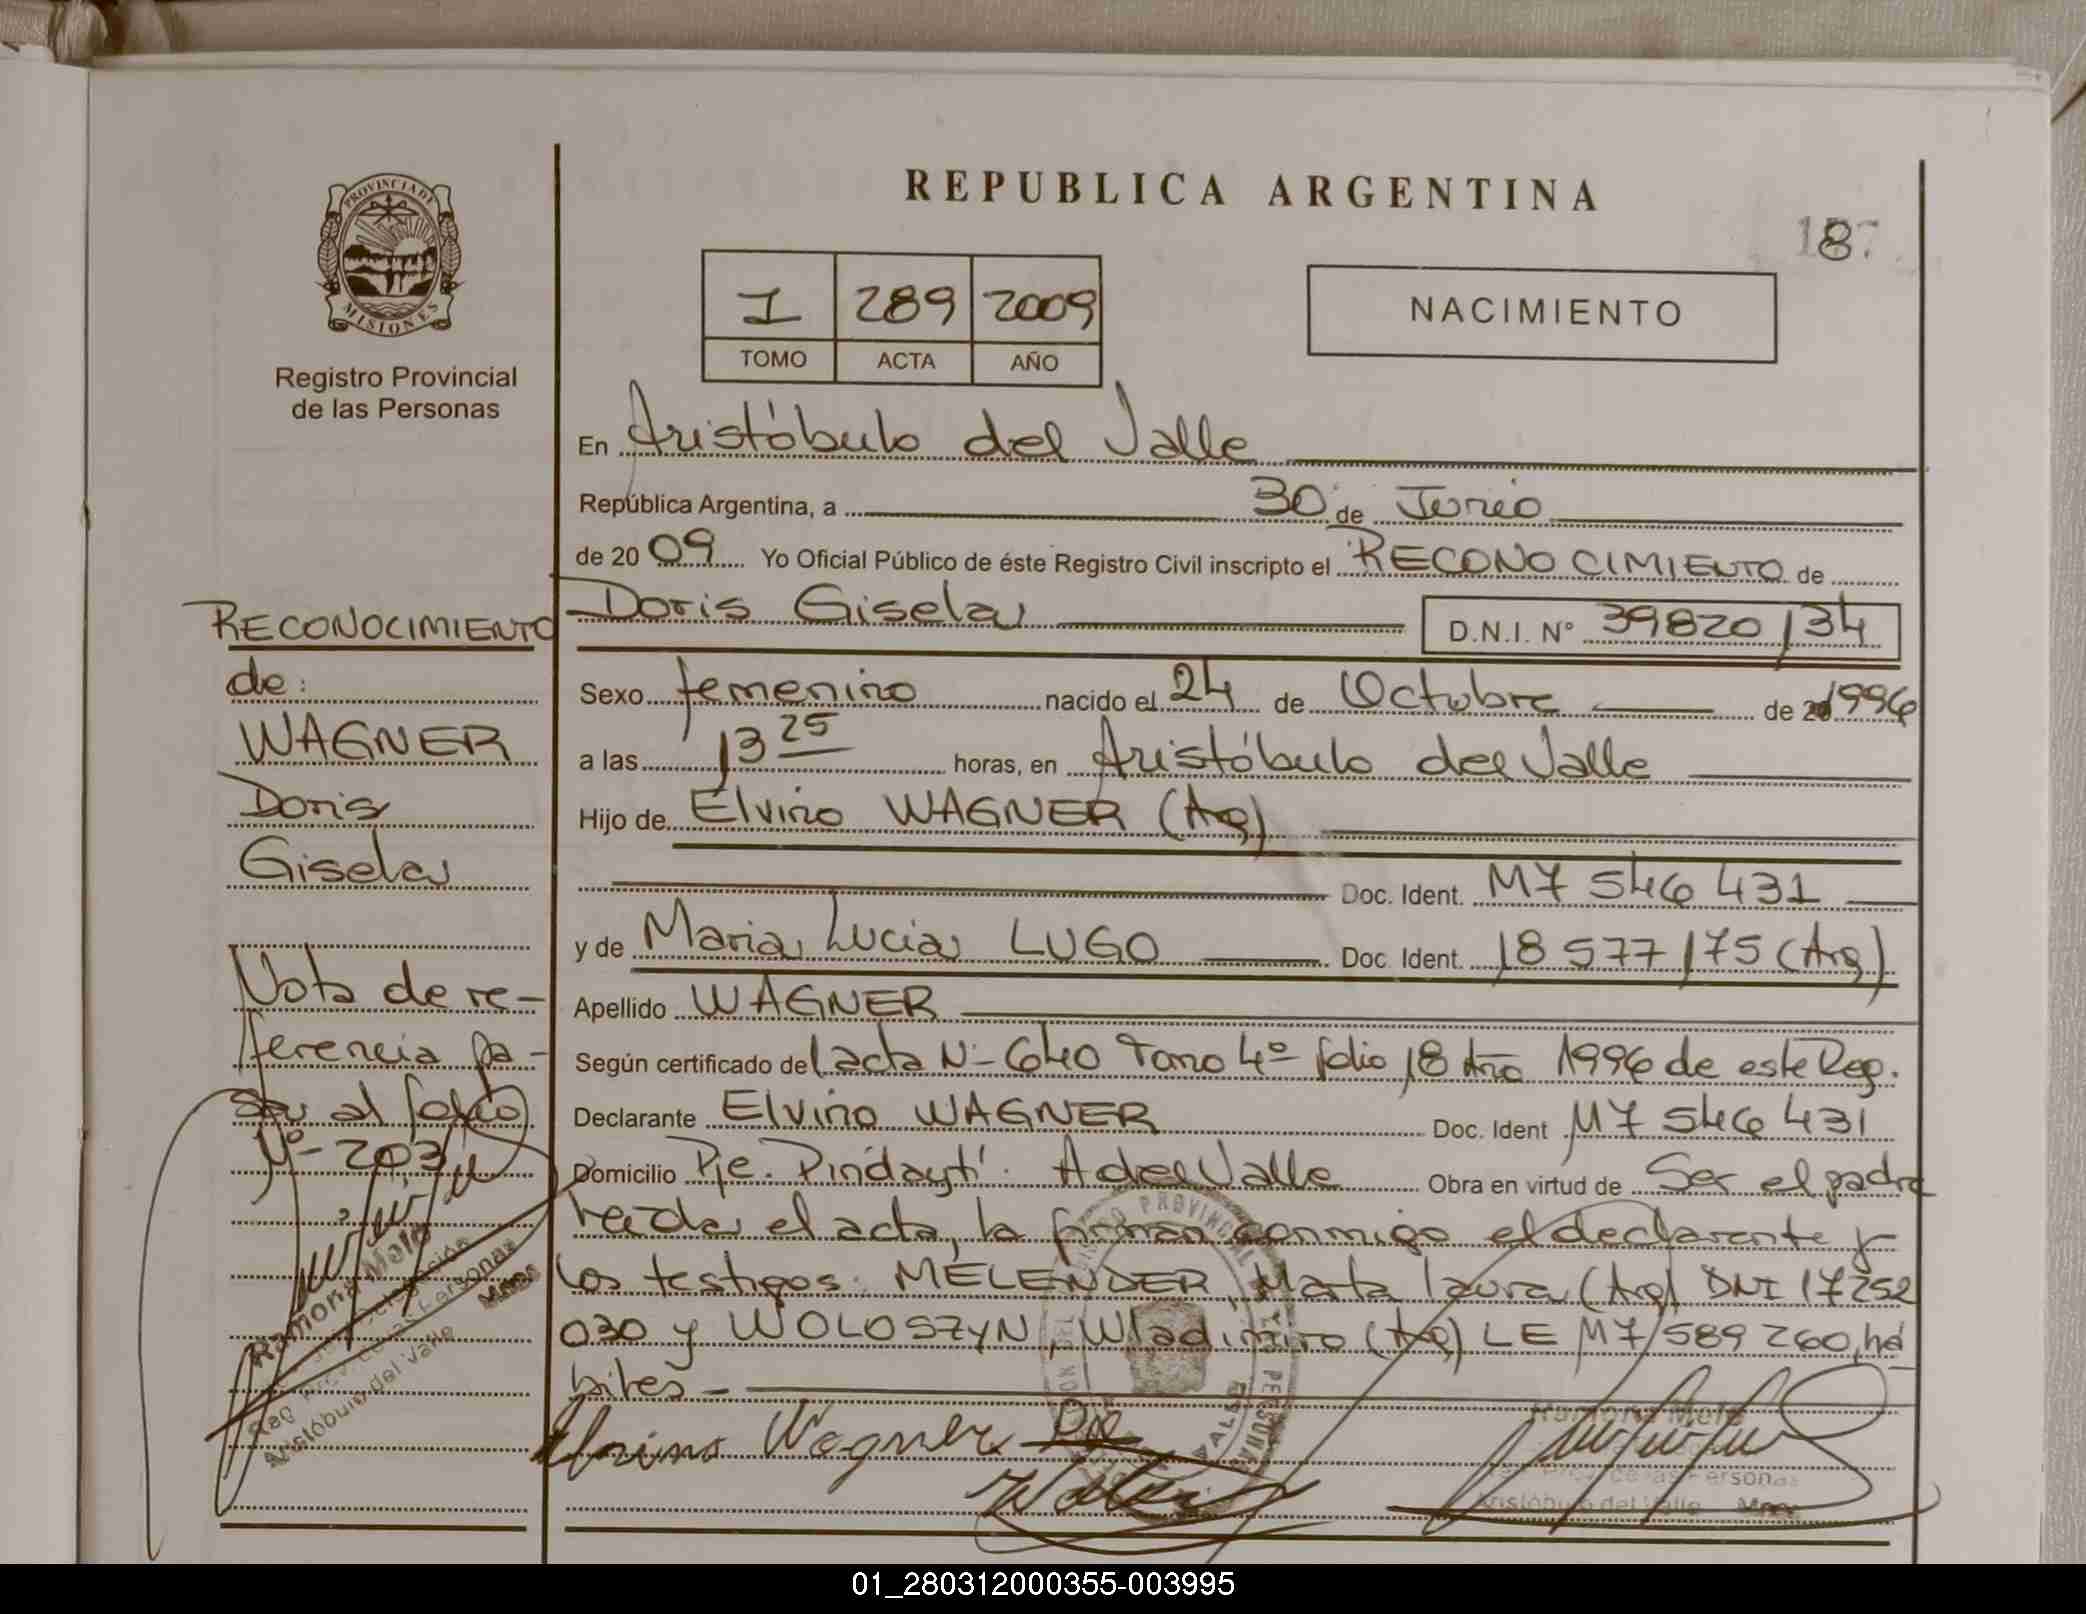 REPUBLICA ARGENTINA
187
PROVINCIA DE
MISIONES
Registro Provincial
de las Personas
I 289 2009
TOMO ACTA AÑO
NACIMIENTO
En Aristóbulo del Valle
República Argentina, a 30 de Junio
de 2009 Yo Oficial Público de éste Registro Civil inscripto el RECONOCIMIENTO de
Doris Gisela D.N.I. N° 39820134
Sexo femenino nacido el 24 de Octubre de 1996
a las 13 25 horas, en Aristóbulo del Valle
Hijo de Elvino WAGNER (Arg)
Doc. Ident. M7 546 431
y de Maria Lucia LUGO Doc. Ident. 18 577 175 (Arg)
Apellido WAGNER
Según certificado de l acta Nº 640 Tomo 4º folio 18 Año 1996 de este Reg.
Declarante Elvino WAGNER Doc. Ident M7 546 431
Domicilio Pje. Pindaytí. A del Valle Obra en virtud de Ser el padre
leída el acta, la firman conmigo el declarante y
los testigos: MELENDER, Marta laura (Arg) DNI 17252
030 y WOLOSZYN, Wladimiro (Arg) LE M7 589 260, há
biles
RECONOCIMIENTO
de:
WAGNER
Doris
Gisela
Nota de re-
ferencia pa-
sar al folio
Nº 203
Ramona Melo
Reg. Prov. de las Personas
Aristóbulo del Valle Mnes
Elvino Wagner
Ramona Melo
Aristóbulo del Valle Mnes
01_280312000355-003995